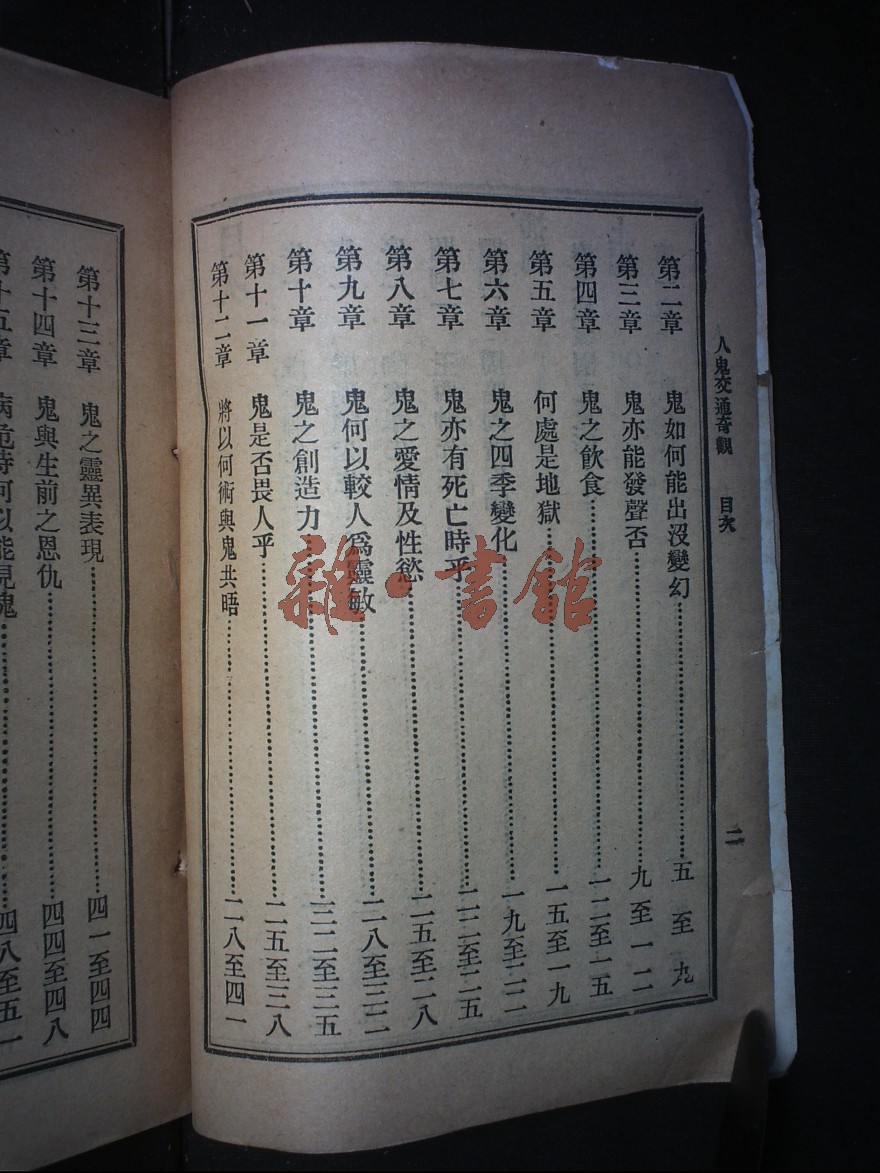 人鬼交通奇觀 目次 二
第二章 鬼如何能出沒變幻……五至九
第三章 鬼亦能發聲否……九至一二
第四章 鬼之飲食……一二至一五
第五章 何處是地獄……一五至一九
第六章 鬼之四季變化……一九至二二
第七章 鬼亦有死亡時乎……二二至二五
第八章 鬼之愛情及性慾……二五至二八
第九章 鬼何以較人爲靈敏……二八至三二
第十章 鬼之創造力……三二至三五
第十一章 鬼是否畏人乎……二五至三八
第十二章 將以何術與鬼共晤……二八至四一
第十三章 鬼之靈異表現……四一至四四
第十四章 鬼與生前之恩仇……四四至四八
第十五章 病危時何以能見鬼……四八至五一
雜·書館